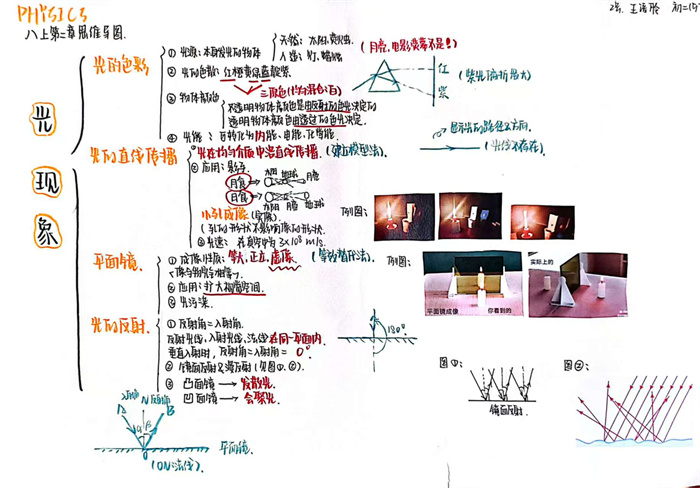 PHYSICS
八上第二章思维导图.
2号. 王语彤 初二(15)
光现象
光的色彩
① 光源：本身发光的物体
天然：太阳,萤火虫.
人造：灯,蜡烛
(月亮,电影荧幕不是!)
② 光的色散：红橙黄绿蓝靛紫.
三原色(均匀混合:白)
红
紫
(紫光偏折最大)
③ 物体颜色
不透明物体颜色是由反射的色光决定的
透明物体颜色由透过的色光决定.
④ 光能：可转化为内能,电能,化学能.
显示光的路径及方向.
(光线不存在).
光的直线传播
① 光在均匀介质中沿直线传播.(建立模型法).
② 应用：影子.
月食
太阳 地球 月亮
日食
太阳 月亮 地球
小孔成像(实像).
(小孔的形状不影响像的形状.
③ 光速：在真空中为3×10⁸ m/s.
示例图：
平面镜.
① 成像性质：等大,正立,虚像.
(等效替代法).
(像与物完全相等)
② 应用：扩大视觉空间.
③ 光污染.
示例图：
平面镜成像
你看到的
实际上的
光的反射.
① 反射角=入射角.
反射光线,入射光线,法线在同一平面内.
垂直入射时,反射角=入射角=0°.
180°
② 镜面反射及漫反射(见图①.②).
③ 凸面镜 → 发散光.
凹面镜 → 会聚光.
图①：
镜面反射.
图②：
入射角
N
反射角
A
B
α
β
O
平面镜.
(ON:法线).